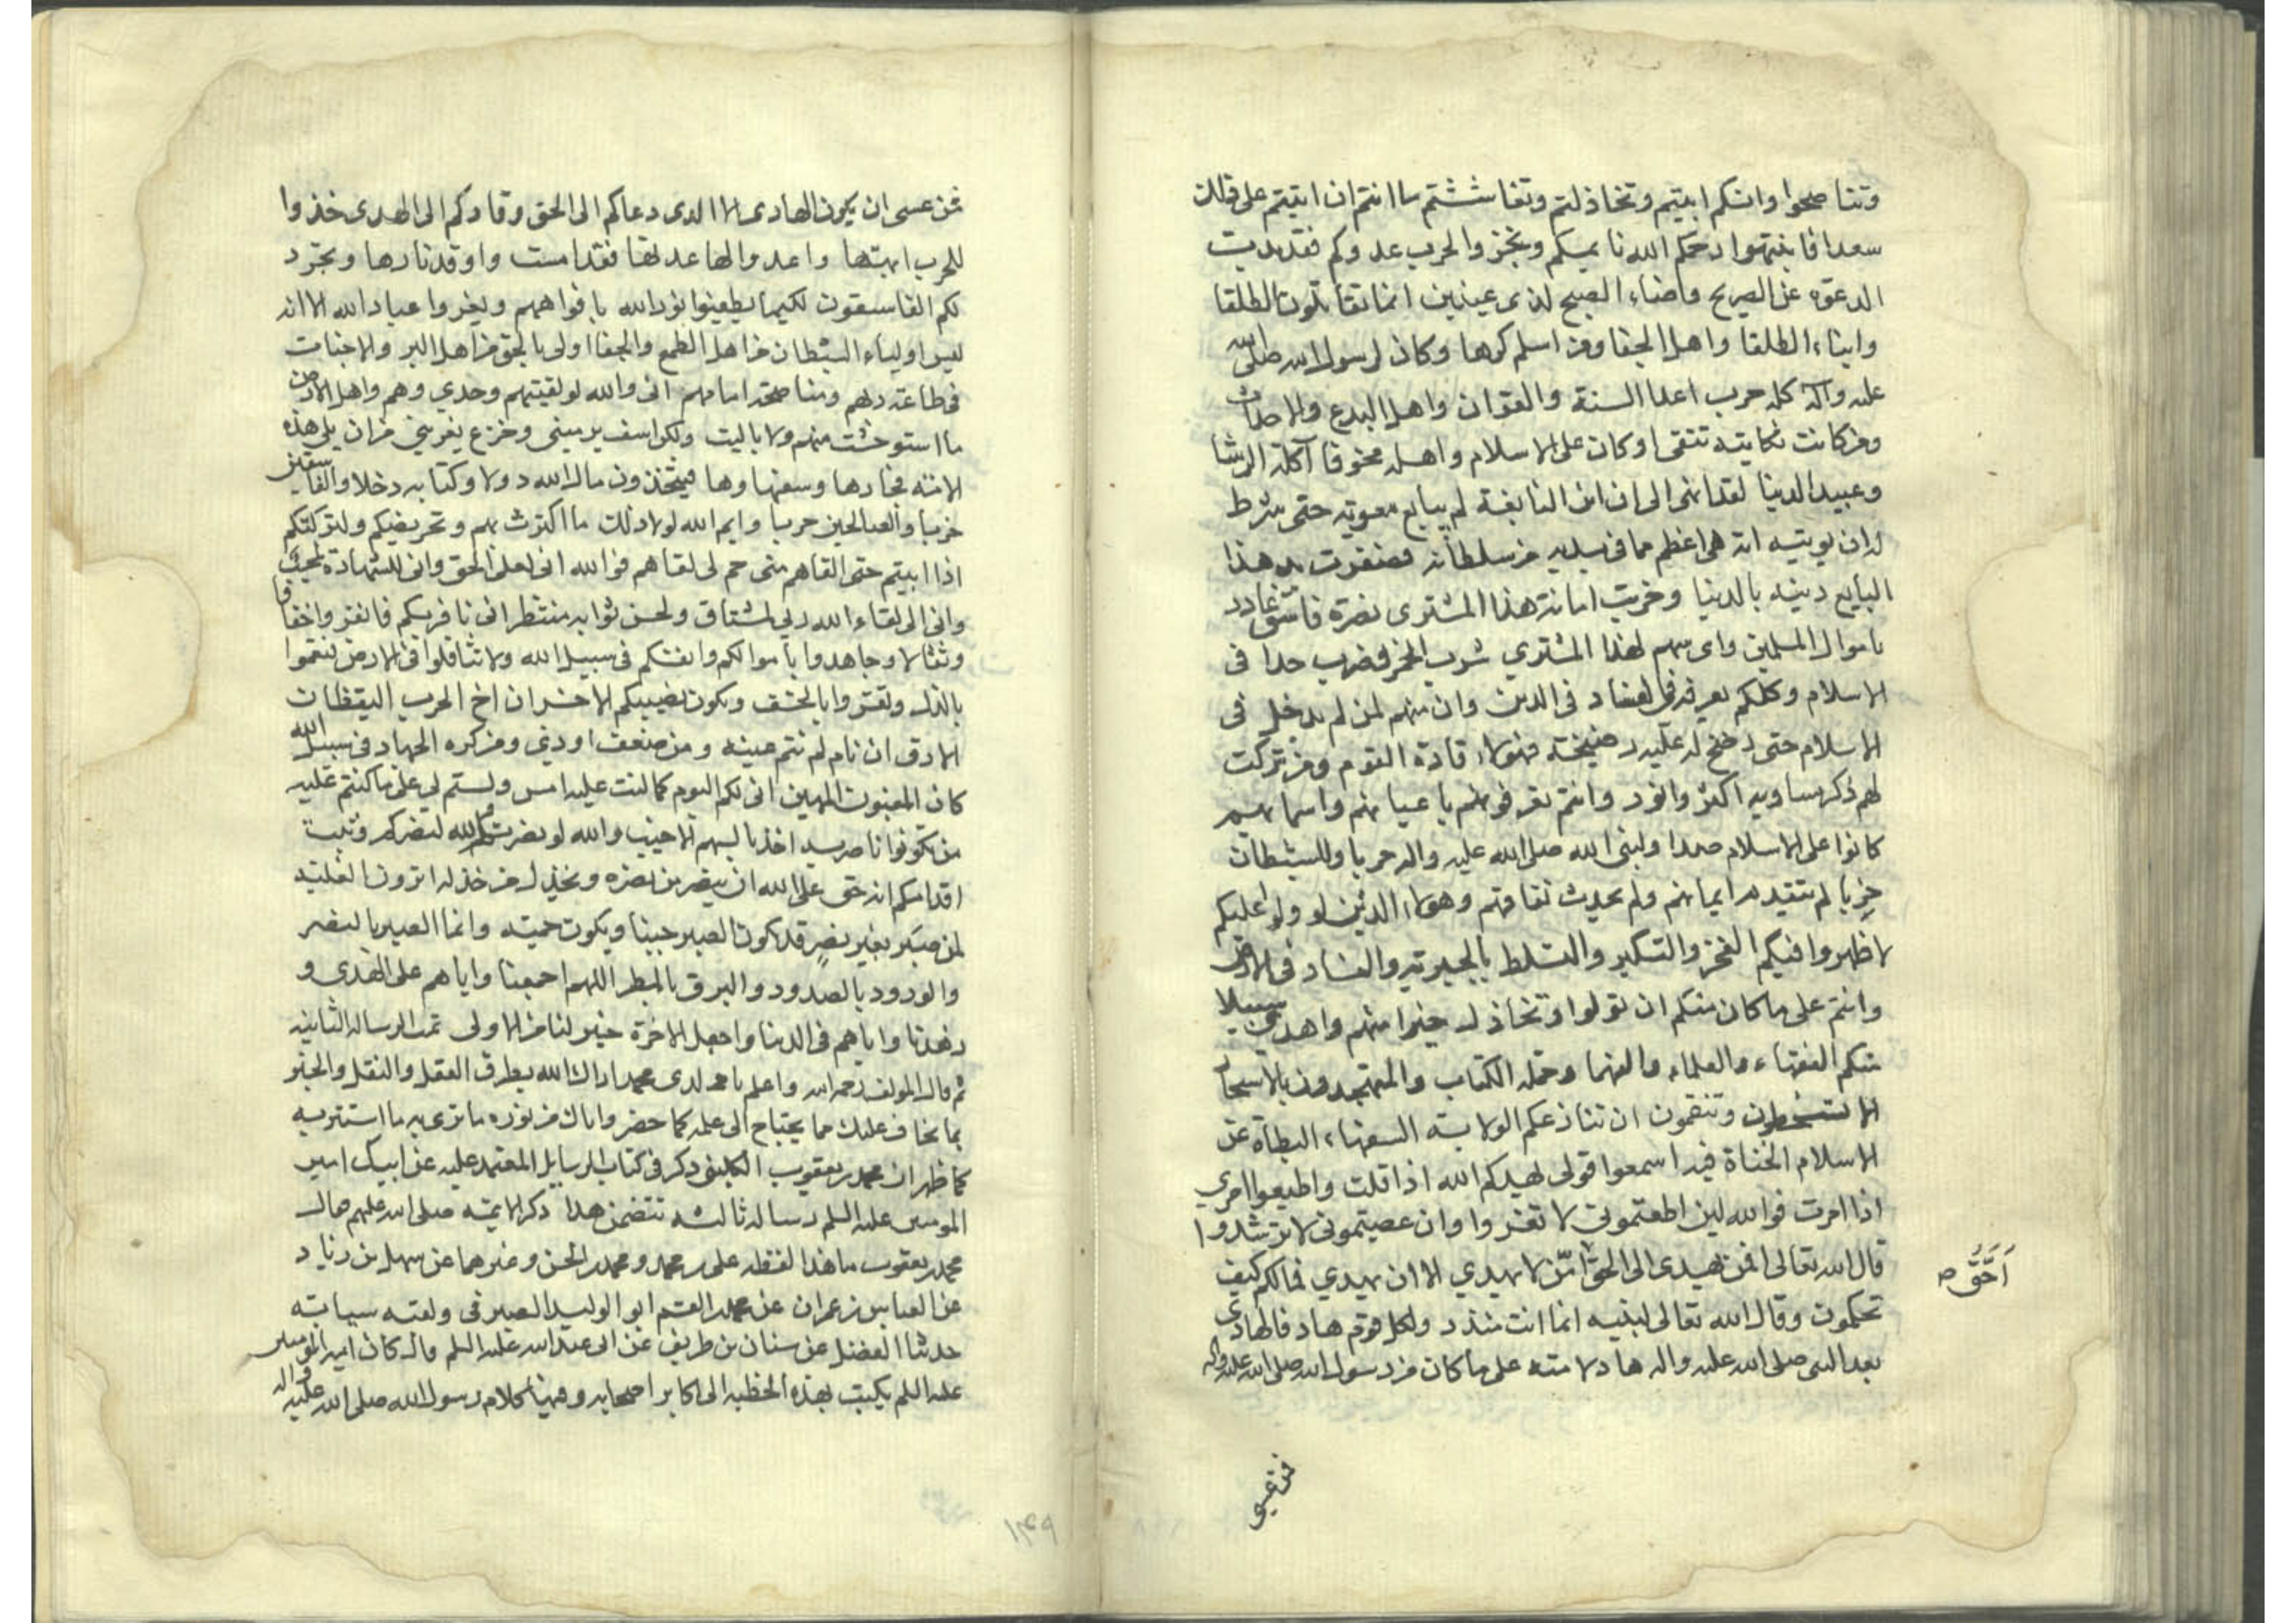 وتناصحوا وانكم ابيتم وتخاذلتم وتغاششتم ما انتم ان ابيتم على ذلك
سعدا فانبتهوا رحمكم الله نايمكم وتجز والحرب عدوكم فقد بدت
الدعوة عن الصريح واضاء الصبح لذى عينين انما تقاتلون الطلقا
وابناء الطلقا واهل الجفا ومن اسلم كرها وكان لرسول الله صلى الله
عليه وآله كله حرب اعدا السنة والقران واهل البدع والاحداث
ومن كانت نكايته تتقى وكان على الاسلام واهله مخوفا آكلة الرشا
وعبيد الدنيا لقد انهى الى ان ابن النابغة لم يبايع معوية حتى شرط
له ان يويتيه اتة هى اعظم مما فى يديه من سلطانه فصفرت يد هذا
البايع دينه بالدنيا وخزيت امانة هذا المشترى نصرة فاسق غادر
باموال المسلمين واى سهم لهذا المشتري شرب الخمر فضرب حدا فى
الاسلام وكلكم يعرفه بالفساد فى الدين وان منهم لمن لم يدخل فى
الاسلام حتى رضخ له عليه رضيخة فهولاء قادة القوم ومن تركت
لهم ذكر مساويه اكثر وانور وانتم تعرفونهم باعيانهم واسمائهم
كانوا على الاسلام ضدا ولنبى الله صلى الله عليه واله حربا وللشيطان
حزبا لم يتقدم ايمانهم ولم يحدث نفاقهم وهولاء الذين لو ولوا عليكم
لاظهروا فيكم الفخر والتكبر والتسلط بالجبرية والفساد فى الارض
وانتم على ما كان منكم ان تولوا وتخاذل خيرا منهم واهدى سبيلا
منكم الفقهاء والعلماء والفهما وحملة الكتاب والمتهجدون بالاسحار
الا تسخطون وتنقمون ان تنازعكم الولاية السفهاء البطاة عن
الاسلام الجفاة فيه اسمعوا قولى يهدكم الله اذا قلت واطيعوا امري
اذا امرت فوالله لئن اطعتموني لا تغووا وان عصيتمونى لا ترشدوا
قال الله تعالى افمن يهدى الى الحق امّن لا يهدي الا ان يهدي فمالكم كيف
أَحَقُّ ص
تحكمون وقال الله تعالى لنبيه انما انت منذر ولكل قوم هاد فالهادى
بعد النبى صلى الله عليه واله هاد لامته على ما كان من رسول الله صلى الله عليه واله
فمن عسى
فمن عسى ان يكون الهادى الا الذى دعاكم الى الحق وقادكم الى الهدى خذوا
للحرب اهبتها واعدوا لها عدتها فقد امست واوقدنارها وتجرد
لكم الفاسقون لكيما يطفئوا نور الله بافواههم ويغروا عباد الله الا انه
ليس اولياء الشيطان من اهل الطمع والجفا اولى بالحق من اهل البر والاخبات
فى طاعة ربهم ومناصحة امامهم انى والله لو لقيتهم وحدي وهم واهل الارض
ما استوحشت منهم ولا باليت ولكن اسف يرينى وجزع يعرينى من ان يلى هذه
الامة فجارها وسفهاوها فيتخذون مال الله دولا وكتابه دخلا والفاسقين
حزبا والصالحين حربا وايم الله لولا ذلك ما اكثرت بهم وتحريضكم ولتركتكم
اذا ابيتم حتى القاهم متى حم لى لقاهم فوالله انى لعلى الحق وانى للشهادة لمحب
وانى الى لقاء الله ربي لمشتاق ولحسن ثوابه منتظر انى نافربكم فانفروا خفافا
وثقالا وجاهدوا باموالكم وانفسكم فى سبيل الله ولا تثاقلوا فى الارض فتعموا
بالذل وتقروا بالخسف ويكون نصيبكم الاخسر ان اخ الحرب اليقظان
الارق ان نام لم تنم عينه ومن ضعف اوذى ومن كره الجهاد فى سبيل الله
كان المغبون المهين انى لكم اليوم كما كنت عليه امس ولستم لى على ما كنتم عليه
من تكونوا ناصريه اخذ بالسهم الاخيب والله لو نصرتم الله لنصركم وثبت
اقدامكم انه حق على الله ان ينصر من نصره ويخذل من خذله اترون الغلبة
لمن صبر بغير نصر قد يكون الصبر جبنا ويكون حمية وانما الصبر بالنصر
والورود بالصدور والبرق بالمطر اللهم اجمعنا واياهم على الهدى و
زهدنا واياهم فى الدنيا واجعل الاخرة خير لنا من الاولى تمت الرسالة الثانية
ثم قال المولف رحمه الله واعلم يا ولدى محمد اراك الله بطرق العقل والنقل والخبر
بما نخاف عليك مما يحتاج الى علمه كما حضر واياك من نوره ما ترى به ما استتر به
كما ظهر ان محمد بن يعقوب الكلينى ذكر فى كتاب الرسايل المعتمد عليه عن ابيك امير
المومنين عليه السلم رسالة ثالثة تتضمن هذا ذكر الائمة صلى الله عليهم فقال
محمد بن يعقوب ما هذا لفظه على بن محمد ومحمد بن الحسن وغيرهما عن سهل بن زياد
عن العباس بن عمران عن محمد بن القسم ابو الوليد الصيرفى ولقبه سيابة
حدثنا الفضل عن سنان بن طريف عن ابى عبد الله عليه السلم قال كان امير المومنين
عليه السلم يكتب بهذه الخطبة الى اكابر اصحابه وفيها كلام رسول الله صلى الله عليه واله
١٤٩